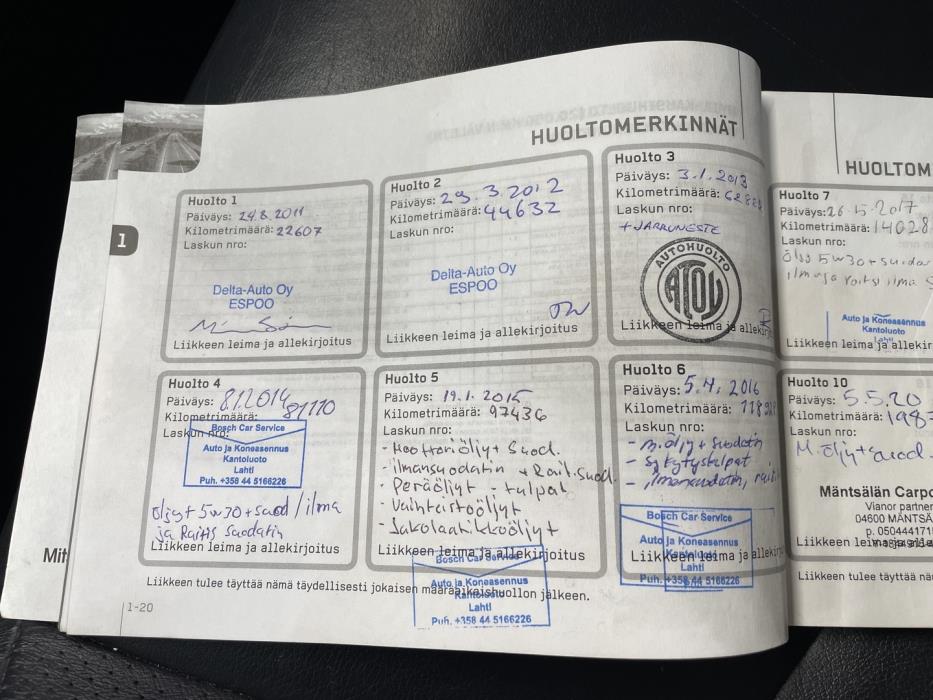 HUOLTOMERKINNÄT
1
Huolto 1
Päiväys: 24.8.2011
Kilometrimäärä: 22607
Laskun nro:
Delta-Auto Oy
ESPOO
Liikkeen leima ja allekirjoitus
Huolto 2
Päiväys: 29.3.2012
Kilometrimäärä: 44632
Laskun nro:
Delta-Auto Oy
ESPOO
Liikkeen leima ja allekirjoitus
Huolto 3
Päiväys: 3.1.2013
Kilometrimäärä:
Laskun nro:
+ JARRUNESTE
AUTOHUOLTO
ATOY
Liikkeen leima ja allekirj
Huolto 4
Päiväys: 8.1.2014
Kilometrimäärä: 81110
Laskun nro:
Bosch Car Service
Auto ja Koneasennus
Kantoluoto
Lahti
Puh. +358 44 5166226
öljyt 5w30 + suod / ilma
ja Raitis Suodatin
Liikkeen leima ja allekirjoitus
Huolto 5
Päiväys: 19.1.2015
Kilometrimäärä: 97436
Laskun nro:
- Moottoriöljyt Suod.
- ilmansuodatin + Rait.suod.
- Peräöljyt - tulpat
- Vaihteistoöljyt
- Jakolaatikkoöljyt
Liikkeen leima ja allekirjoitus
Bosch Car Service
Auto ja Koneasennus
Kantoluoto
Lahti
Puh. +358 44 5166226
Huolto 6
Päiväys: 5.4.2016
Kilometrimäärä:
Laskun nro:
- m.öljy + Suodatin
- Sytytystulpat
- ilmansuodatin, rait
Bosch Car Service
Liikkeen leima ja allekirjoitus
Auto ja Koneasennus
Kantoluoto
Lahti
Puh. +358 44 5166226
Liikkeen tulee täyttää nämä täydellisesti jokaisen määräaikaishuollon jälkeen.
1-20
Mit
HUOLTOM
Huolto 7
Päiväys: 26.5.2017
Kilometrimäärä: 14028
Laskun nro:
Öljy 5w30 + suodat
ilmaja raitsi ilma S
Auto ja Koneasennus
Kantoluoto
Lahti
Liikkeen leima ja allekir
Huolto 10
Päiväys: 5.5.20
Kilometrimäärä: 1987
Laskun nro:
M.öljy + suod.
Mäntsälän Carpo
Vianor partner
04600 MÄNTSÄ
p. 0504441715
Liikkeen leima ja alle
Liikkeen tulee täyttää nä